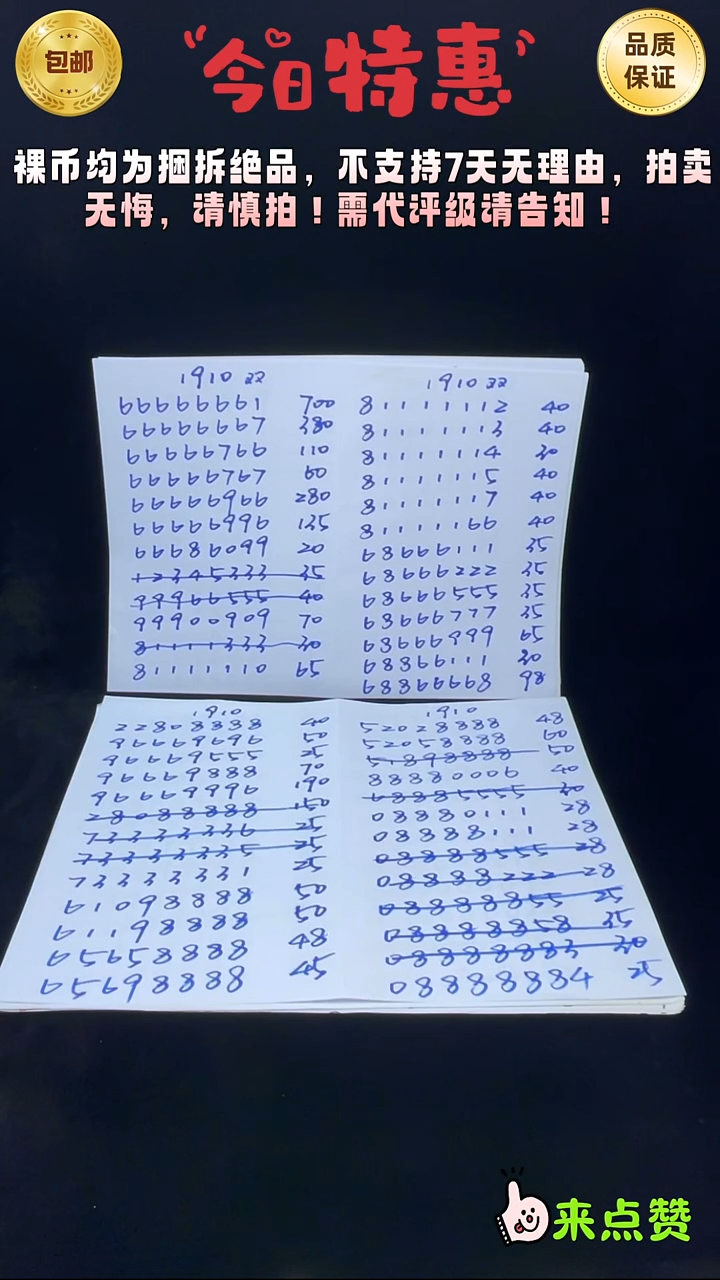 包邮
今日特惠
品质
保证
裸币均为捆拆绝品，不支持7天无理由，拍卖
无悔，请慎拍！需代评级请告知！
1910 22
66666661 700
66666667 380
66666766 110
66666767 60
66666966 280
66666996 135
66686099 20
12345333 35
99966555 40
99900909 70
81111333 30
81111110 65
1910 22
81111112 40
81111113 40
81111114 30
81111115 40
81111117 40
81111166 40
68666111 35
68666222 35
68666555 35
68666777 35
68666999 65
68866111 30
68866668 98
1910
22808888 40
96669696 50
96669555 25
96669888 70
96669996 190
28088888 150
73333336 25
73333335 25
73333331 25
61098888 50
61198888 50
65658888 48
65698888 45
1910
52028888 48
52058888 60
51898888 50
88880006 40
68885555 30
08880111 28
08888111 28
08888555 28
08888222 28
08888855 25
08888858 35
08888883 30
08888884 25
来点赞